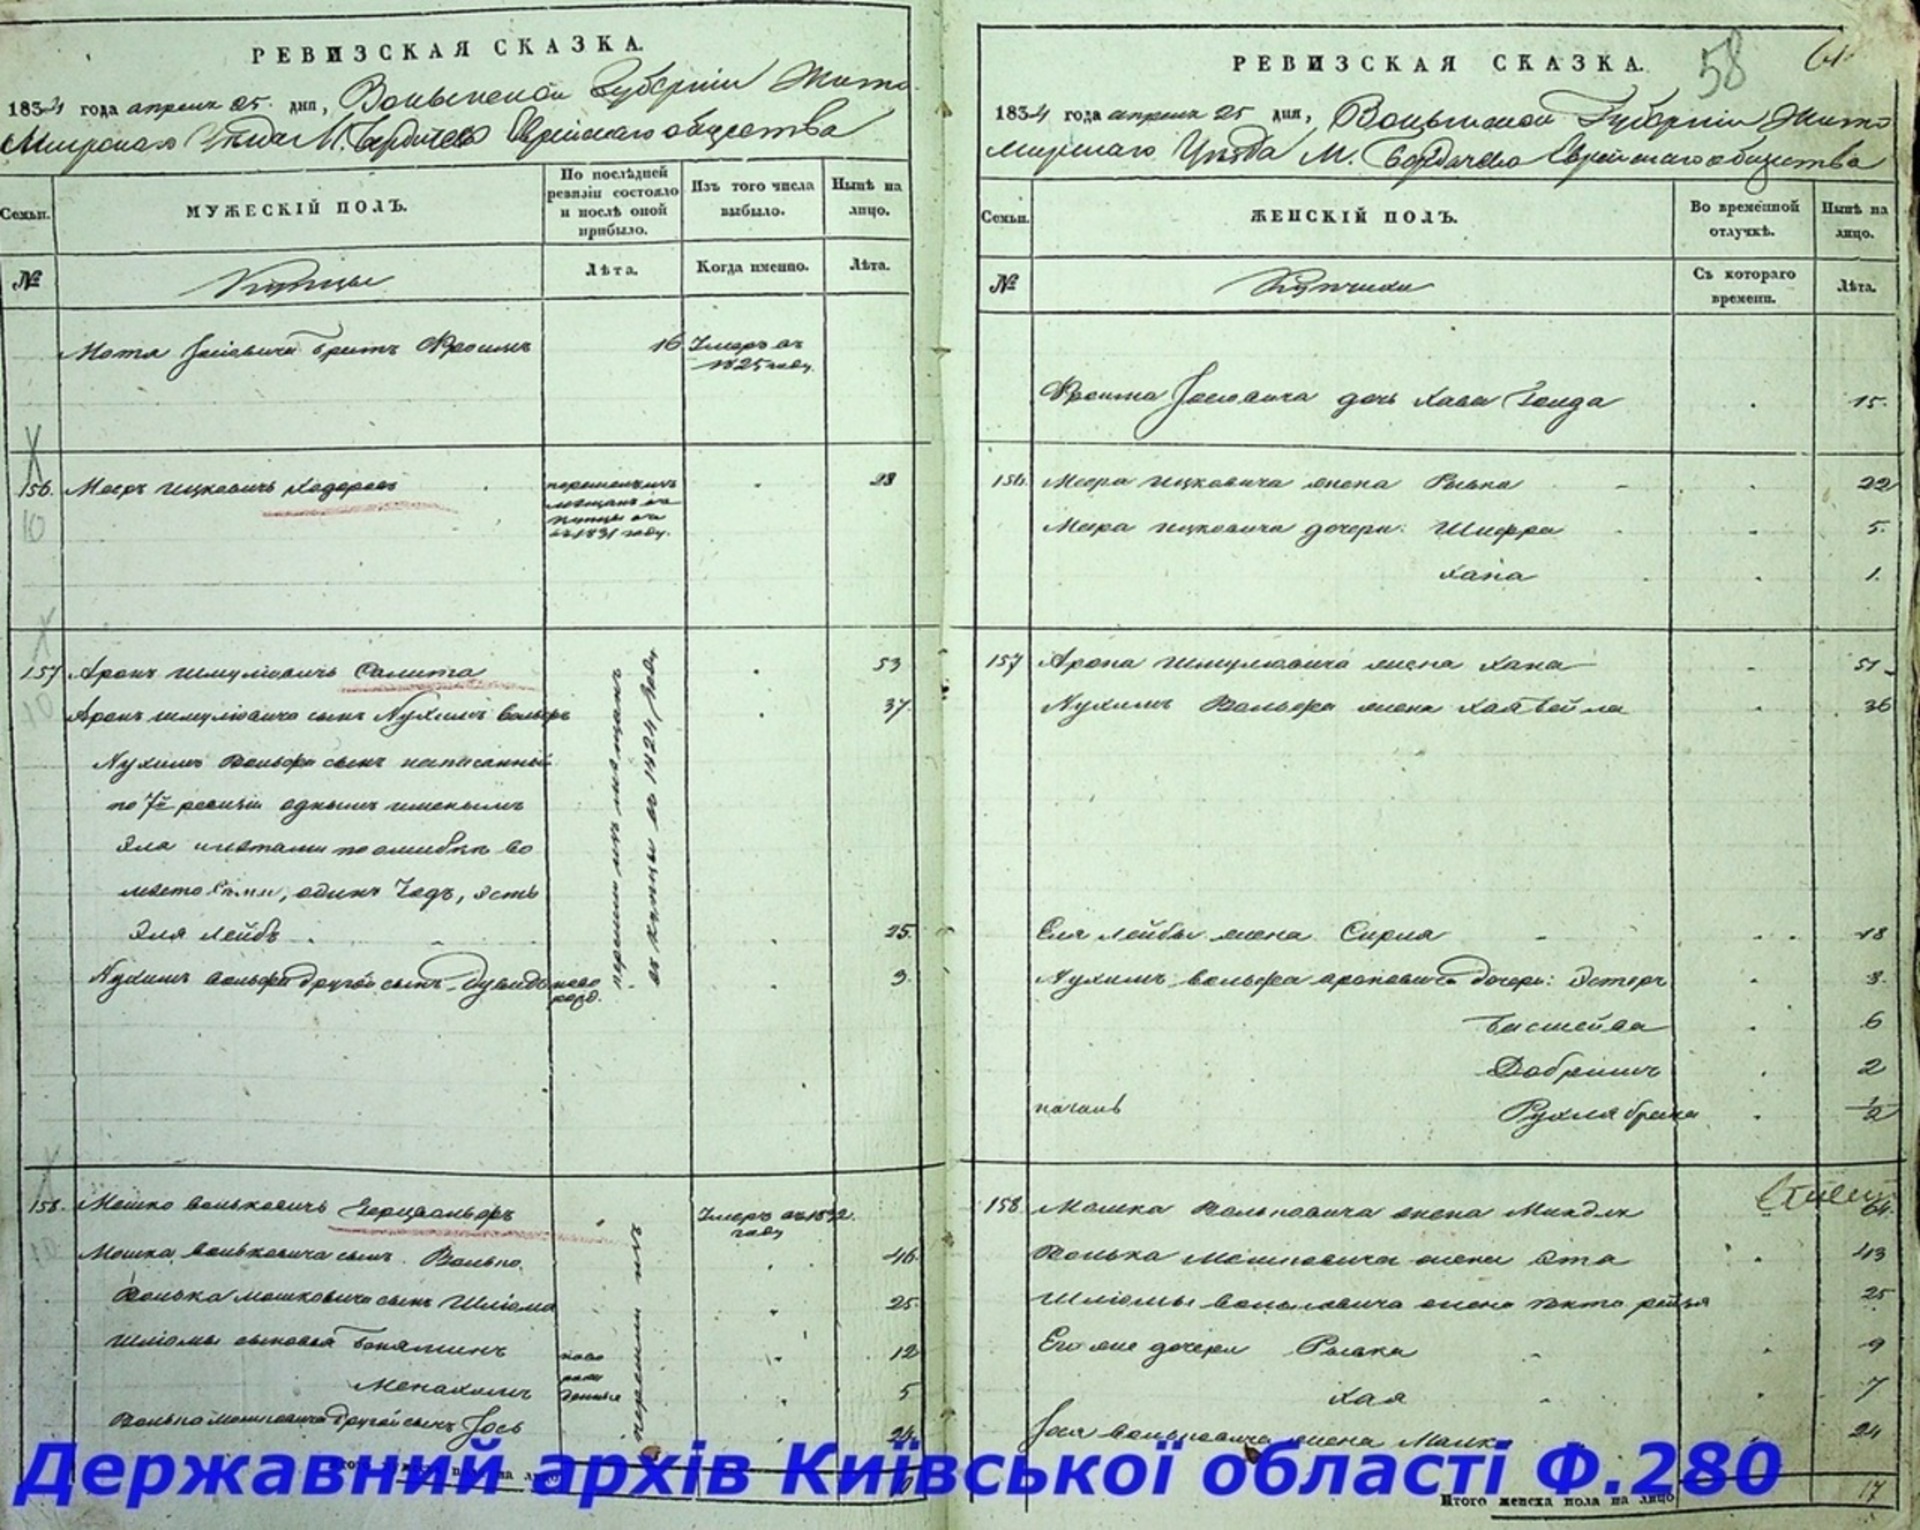 РЕВИЗСКАЯ СКАЗКА.
1834 года апреля 25 дня, Волынской Губерніи Жито
Мирскаго Уезда М. Бердичева Еврейскаго общества
Семьи.
МУЖЕСКІЙ ПОЛЪ.
По послѣдней ревизіи состояло и послѣ оной прибыло.
Изъ того числа выбыло.
Нынѣ на лицо.
№
Купцы
Лѣта.
Когда именно.
Лѣта.
Мотя Іосіовича братъ 16 Умеръ въ 1825 году.
156. Мееръ Ицковичъ 28
въ 1831 году.
10
157 Аронъ Шмулiовичъ Салита 53
10 Аронъ Шмулiовича сынъ Нухимъ Вольфъ 37.
Нухимъ Вольфа сынъ написанный
по 7й ревизіи однымъ именемъ
Эля и летами по ошибкѣ во
место, одинъ Годъ, есть
Эля Лейбъ 25.
Нухимъ Вольфа другой сынъ Дувидъ ново рожд. 3.
въ купцы въ 1824 году
158. Мошко Вольковичъ Герцвольфъ Умеръ въ 1832 году
10 Мошка Вольковича сынъ Волько 46.
Волька Мошковича сынъ Шліома 25.
Шліомы сыновья Беняминъ 12
Менахимъ 5
ново рожденные
Волька Мошковича другой сынъ Іось 24
перешли изъ
РЕВИЗСКАЯ СКАЗКА.
58
61
1834 года апреля 25 дня, Волынской Губерніи Жито
мирскаго Уезда М. Бердичева Еврейскаго общества
Семьи.
ЖЕНСКІЙ ПОЛЪ.
Во временной отлучкѣ.
Нынѣ на лицо.
№
Купчихи
Съ котораго времени.
Лѣта.
Іосіовича дочь Хава Голда 15.
156. Меера Ицковича жена Рывка 22
Меера Ицковича дочери: Шифра 5.
Хана 1.
157 Арона Шмулiовича жена Хана 51
Нухимъ Вольфа жена Хая Бейла 36
Еля Лейбы жена Сирка 18
Нухимъ Вольфа Ароновича дочери: Эстеръ 8.
Басшейва 6
Добришъ 2
Рухля Брана 1/2
158 Мошка Вольковича жена Миндля 64.
Волька Мошковича жена Эта 43
Шліомы Вольковича жена 25
Его же дочери Рывка 9
Хая 7
Іося Вольковича жена Малка 24
Итого женска пола на лицо 17
Державний архів Київської області Ф.280